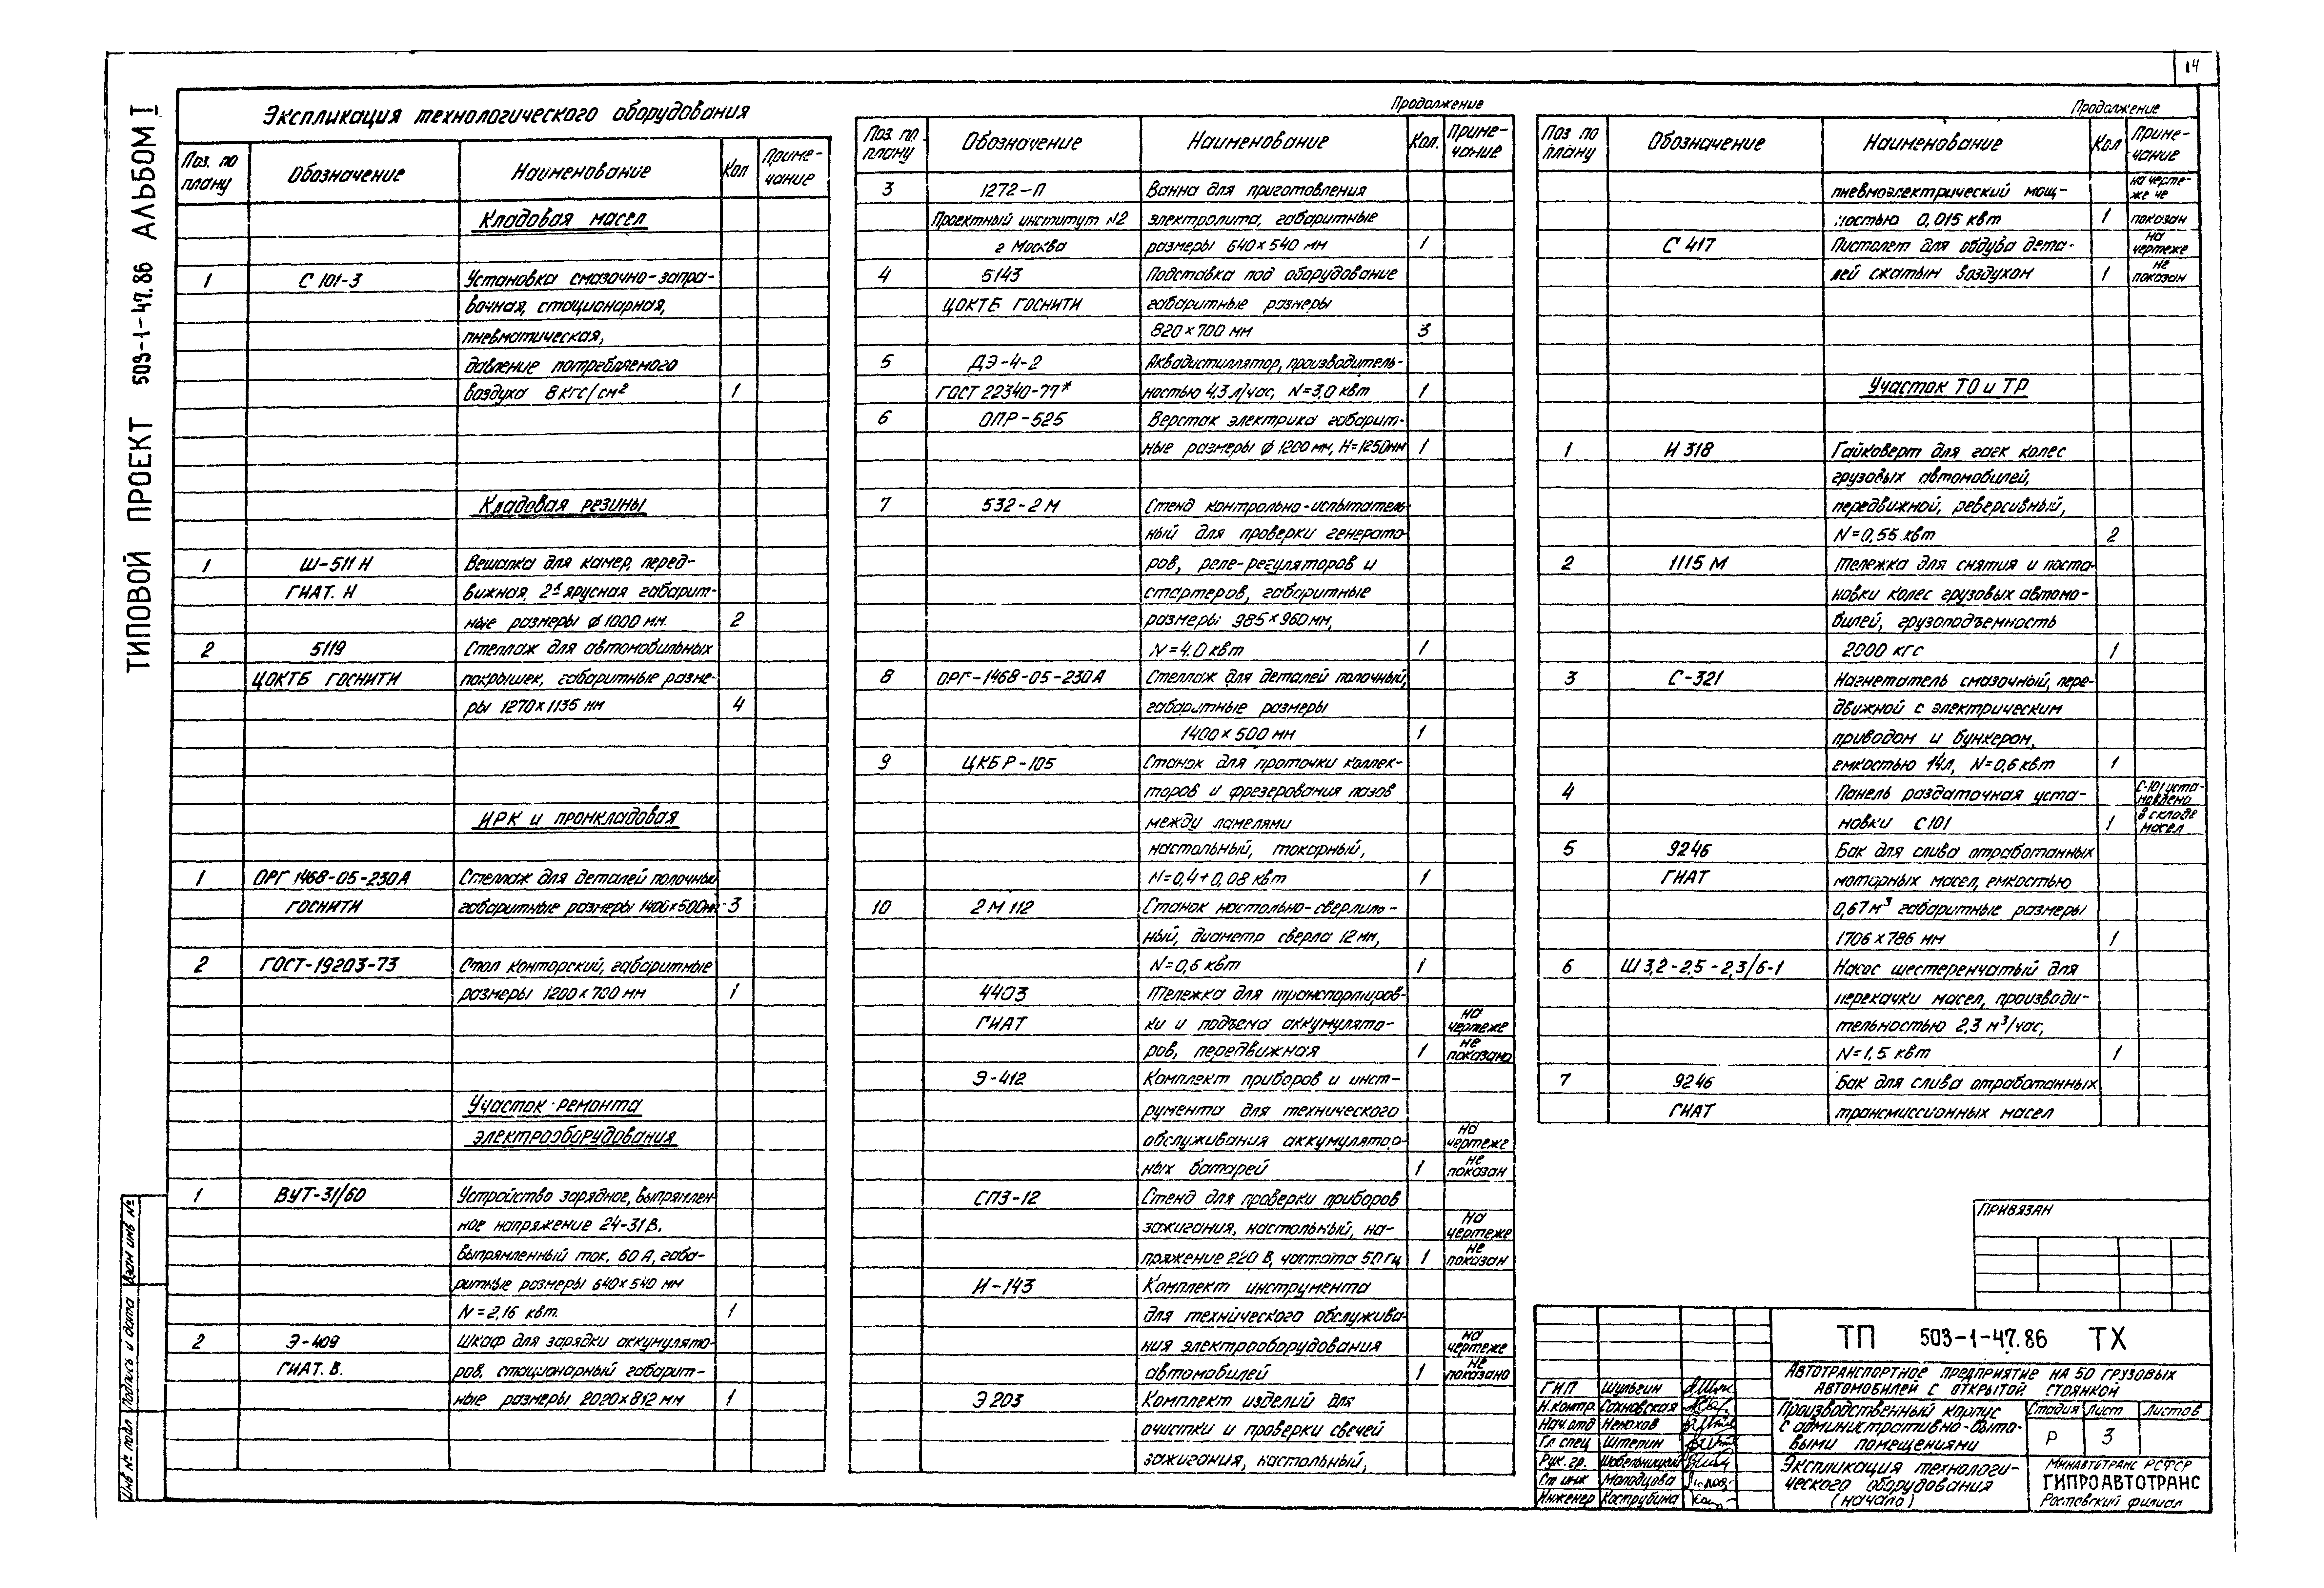 14
ТИПОВОЙ ПРОЕКТ 503-1-47.86 АЛЬБОМ I
Экспликация технологического оборудования
Поз. по плану Обозначение Наименование Кол Примечание
Кладовая масел
1 С 101-3 Установка смазочно-запра-
вочная, стационарная,
пневматическая,
давление потребляемого
воздуха 8 кгс/см² 1
Кладовая резины
1 Ш-511 Н Вешалка для камер, перед-
ГИАТ. Н вижная, 2х ярусная габарит-
ные размеры ф 1000 мм. 2
2 5119 Стеллаж для автомобильных
ЦОКТБ ГОСНИТИ покрышек, габаритные разме-
ры 1270×1135 мм 4
ИРК и промкладовая
1 ОРГ 1468-05-230А Стеллаж для деталей полочный
ГОСНИТИ габаритные размеры 1400×500мм 3
2 ГОСТ-19203-73 Стол конторский, габаритные
размеры 1200×700 мм 1
Участок ремонта
электрооборудования
1 ВУТ-31/60 Устройство зарядное, выпрямлен-
ное напряжение 24-31 В,
выпрямленный ток, 60 А, габа-
ритные размеры 640×540 мм
N=2,16 квт. 1
2 Э-409 Шкаф для зарядки аккумулято-
ГИАТ. В. ров, стационарный габарит-
ные размеры 2020×812 мм 1
Продолжение
Поз. по плану Обозначение Наименование Кол. Примечание
3 1272-П Ванна для приготовления
Проектный институт №2 электролита, габаритные
г Москва размеры 640×540 мм 1
4 5143 Подставка под оборудование
ЦОКТБ ГОСНИТИ габаритные размеры
820×700 мм 3
5 ДЭ-4-2 Аквадистиллятор, производитель-
ГОСТ 22340-77* ностью 4,3 л/час, N=3,0 квт 1
6 ОПР-525 Верстак электрика габарит-
ные размеры ф 1200 мм, Н=1250мм 1
7 532-2 М Стенд контрольно-испытатель-
ный для проверки генерато-
ров, реле-регуляторов и
стартеров, габаритные
размеры 985×960мм,
N=4.0 квт 1
8 ОРГ-1468-05-230А Стеллаж для деталей полочный,
габаритные размеры
1400×500 мм 1
9 ЦКБ Р-105 Станок для проточки коллек-
торов и фрезерования пазов
между ламелями
настольный, токарный,
N=0,4+0,08 квт 1
10 2 М 112 Станок настольно-сверлиль-
ный, диаметр сверла 12 мм,
N=0,6 квт 1
4403 Тележка для транспортиров-
ГИАТ ки и подъема аккумулято- на чертеже
ров, передвижная 1 не показана
Э-412 Комплект приборов и инст-
румента для технического
обслуживания аккумулятор- на чертеже
ных батарей 1 не показан
СПЗ-12 Стенд для проверки приборов
зажигания, настольный, на- на чертеже
пряжение 220 В, частота 50 Гц 1 не показан
И-143 Комплект инструмента
для технического обслужива-
ния электрооборудования на чертеже
автомобилей 1 не показано
Э 203 Комплект изделий для
очистки и проверки свечей
зажигания, настольный,
Продолжение
Поз по плану Обозначение Наименование Кол Примечание
пневмоэлектрический мощ- на черте-
же не
ностью 0,015 квт 1 показан
С 417 Пистолет для обдува дета- на чертеже
лей сжатым воздухом 1 не показан
Участок ТО и ТР
1 И 318 Гайковерт для гаек колес
грузовых автомобилей,
передвижной, реверсивный,
N=0,55 квт 2
2 1115 М Тележка для снятия и поста-
новки колес грузовых автомо-
билей, грузоподъемность
2000 кгс 1
3 С-321 Нагнетатель смазочный, пере-
движной с электрическим
приводом и бункером,
емкостью 14л, N=0,6 квт 1
4 Панель раздаточная уста- С-101 уста-
новлено
новки С101 1 в складе масел
5 9246 Бак для слива отработанных
ГИАТ моторных масел, емкостью
0,67 м³ габаритные размеры
1706×786 мм 1
6 Ш 3,2-2,5-2,3/6-1 Насос шестеренчатый для
перекачки масел, производи-
тельностью 2,3 м³/час,
N=1,5 квт 1
7 9246 Бак для слива отработанных
ГИАТ трансмиссионных масел
ПРИВЯЗАН
ТП 503-1-47.86 ТХ
Автотранспортное предприятие на 50 грузовых
автомобилей с открытой стоянкой
ГИП Шульгин
Н.контр. Сахновская
Нач.отд Ненюхов
Гл спец Штепин
Рук. гр. Шабельницкий
Ст инж Молодцова
Инженер Кострубина
Производственный корпус
с административно-быто-
выми помещениями
Стадия Лист Листов
Р 3
Экспликация технологи-
ческого оборудования
(начало)
Минавтотранс РСФСР
ГИПРОАВТОТРАНС
Ростовский филиал
Инв № подл Подпись и дата Взам инв №